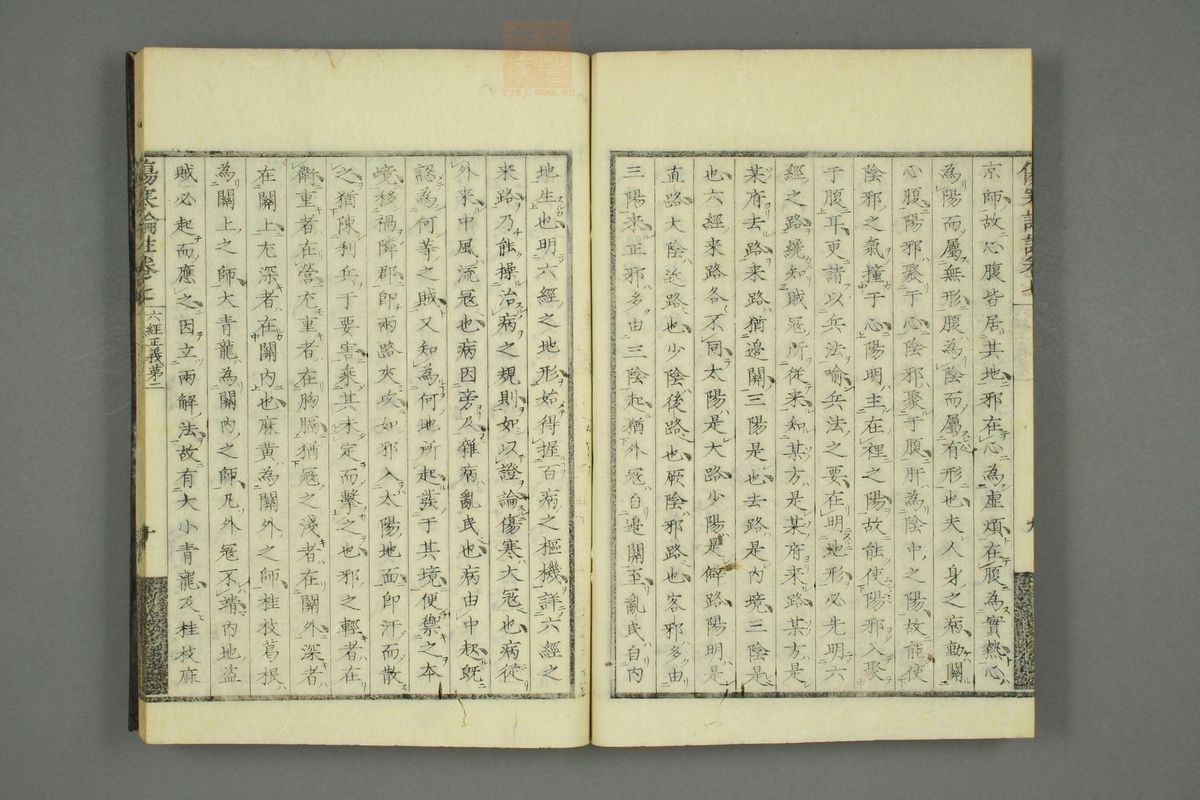 京師故心腹皆居其地邪在心為虛煩在腹為實熱心
為陽而屬無形腹為陰而屬有形也夫人身之病動關
心腹陽邪聚于心陰邪聚于腹肝為陰中之陽故能使
陰邪之氣撞于心陽明主在裡之陽故能使陽邪入聚
于腹耳更請以兵法喻兵法之要在明地形必先明六
經之路纔知賊寇所從来知某方是某府来路某方是
某府去路来路猶邊關三陽是也去路是内境三陰是
也六經来路各不同太陽是大路少陽是僻路陽明是
直路太陰近路也少陰後路也厥陰邪路也客邪多由
三陽来正邪多由三陰起猶外寇自邊關至亂民自内
地生也明六經之地形始得握百病之樞機詳六經之
来路乃能操治病之規則如以證論傷寒大寇也病從
外来中風流寇也病因旁及雜病亂民也病由中起既
認為何等之賊又知為何地所起發于其境便禦之本
境移禍隣郡即兩路夾攻如邪入太陽地面即汗而散
之猶陳利兵于要害乘其未定而擊之也邪之輕者在
衛重者在營尤重者在胸膈猶寇之淺者在關外深者
在關上尤深者在關内也麻黄為關外之師桂枝葛根
為關上之師大青龍為關内之師凡外寇不靖内地盗
賊必起而應之因立兩解法故有大小青龍及桂枝麻
傷寒論註卷七
六經正義第二
十